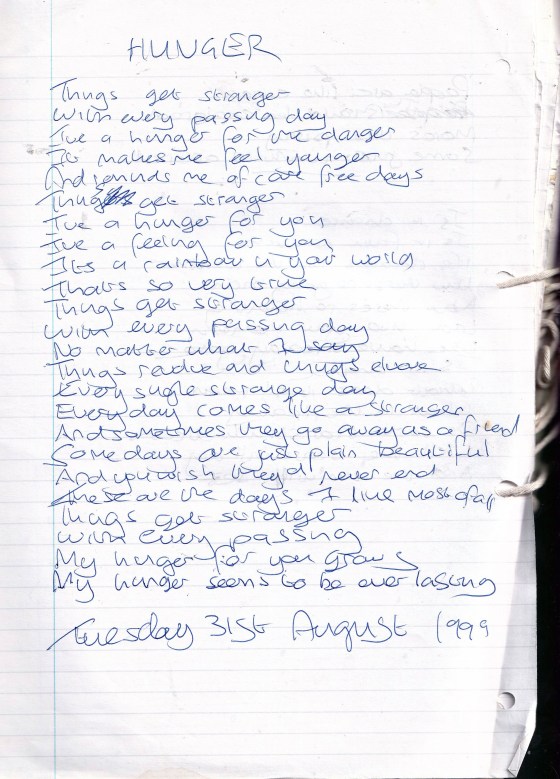 HUNGER
Things get stranger
With every passing day
I've a hunger for the danger
It makes me feel younger
And reminds me of care free days
Things get stranger
I've a hunger for you
I've a feeling for you
It's a rainbow in your world
Thats so very true
Things get stranger
With every passing day
No matter what I say
Things reduce and things elevate
Every single strange day
Everyday comes like a stranger
And sometimes they go away as a friend
Some days are just plain beautiful
And you wish they'd never end
These are the days I like most of all
Things get stranger
With every passing
My hunger for you grows
My hunger seems to be everlasting
Tuesday 31st August 1999